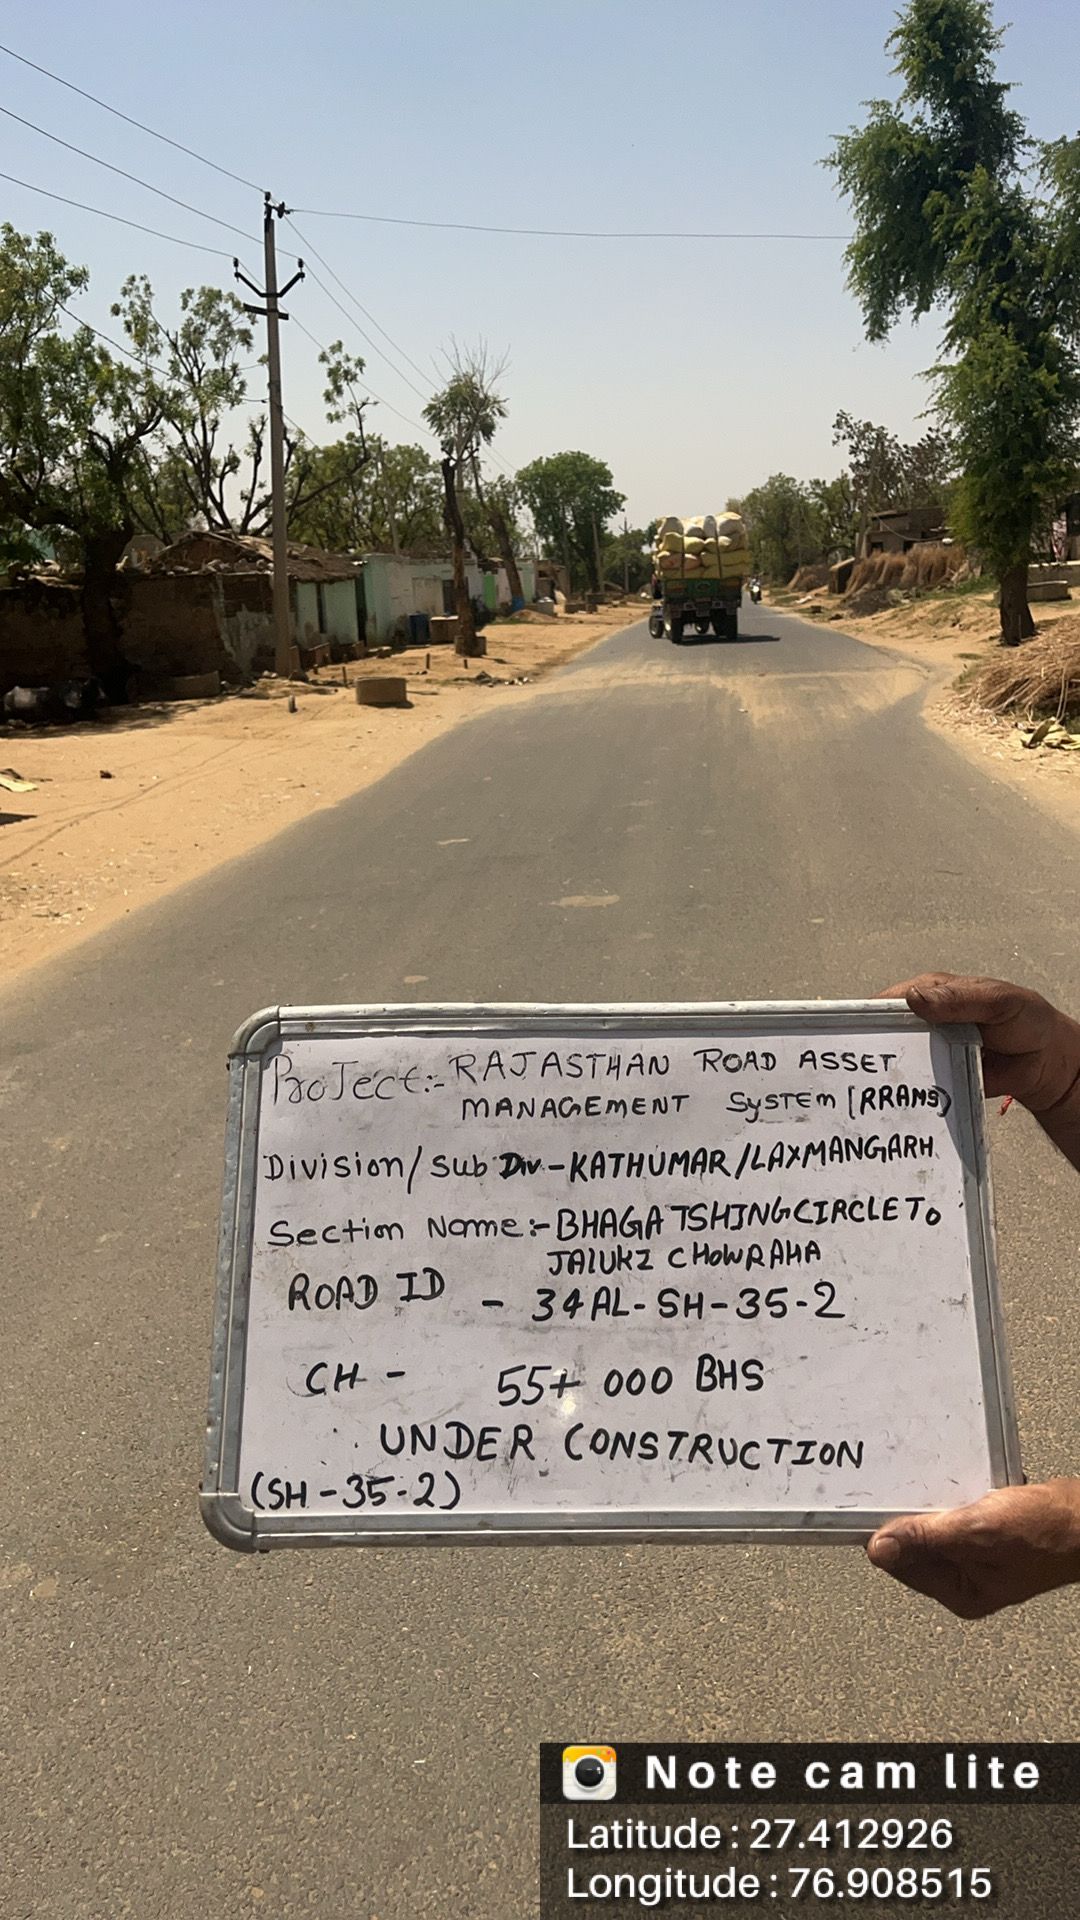 Project:- RAJASTHAN ROAD ASSET
MANAGEMENT SYSTEM (RRAMS)
Division/Sub Div-KATHUMAR/LAXMANGARH
Section Name:-BHAGATSHINGCIRCLE To
JALUKI CHOWRAHA
ROAD ID - 34AL-SH-35-2
CH - 55+000 BHS
UNDER CONSTRUCTION
(SH-35-2)
Note cam lite
Latitude : 27.412926
Longitude : 76.908515